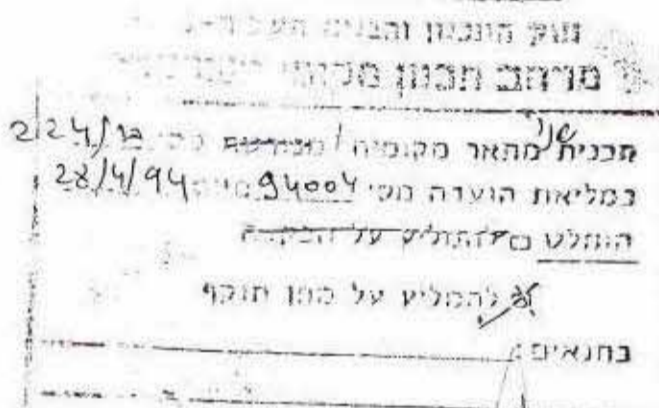 חוק התכנון והבניה
מרחב תכנון מקומי
תכנית שנוי מתאר מקומית / מפורטת מס' 224/במ/2
במליאת הועדה מס' 94004 מיום 28/4/94
הוחלט להמליץ על הפקדה
להמליץ על מתן תוקף
בתנאים: